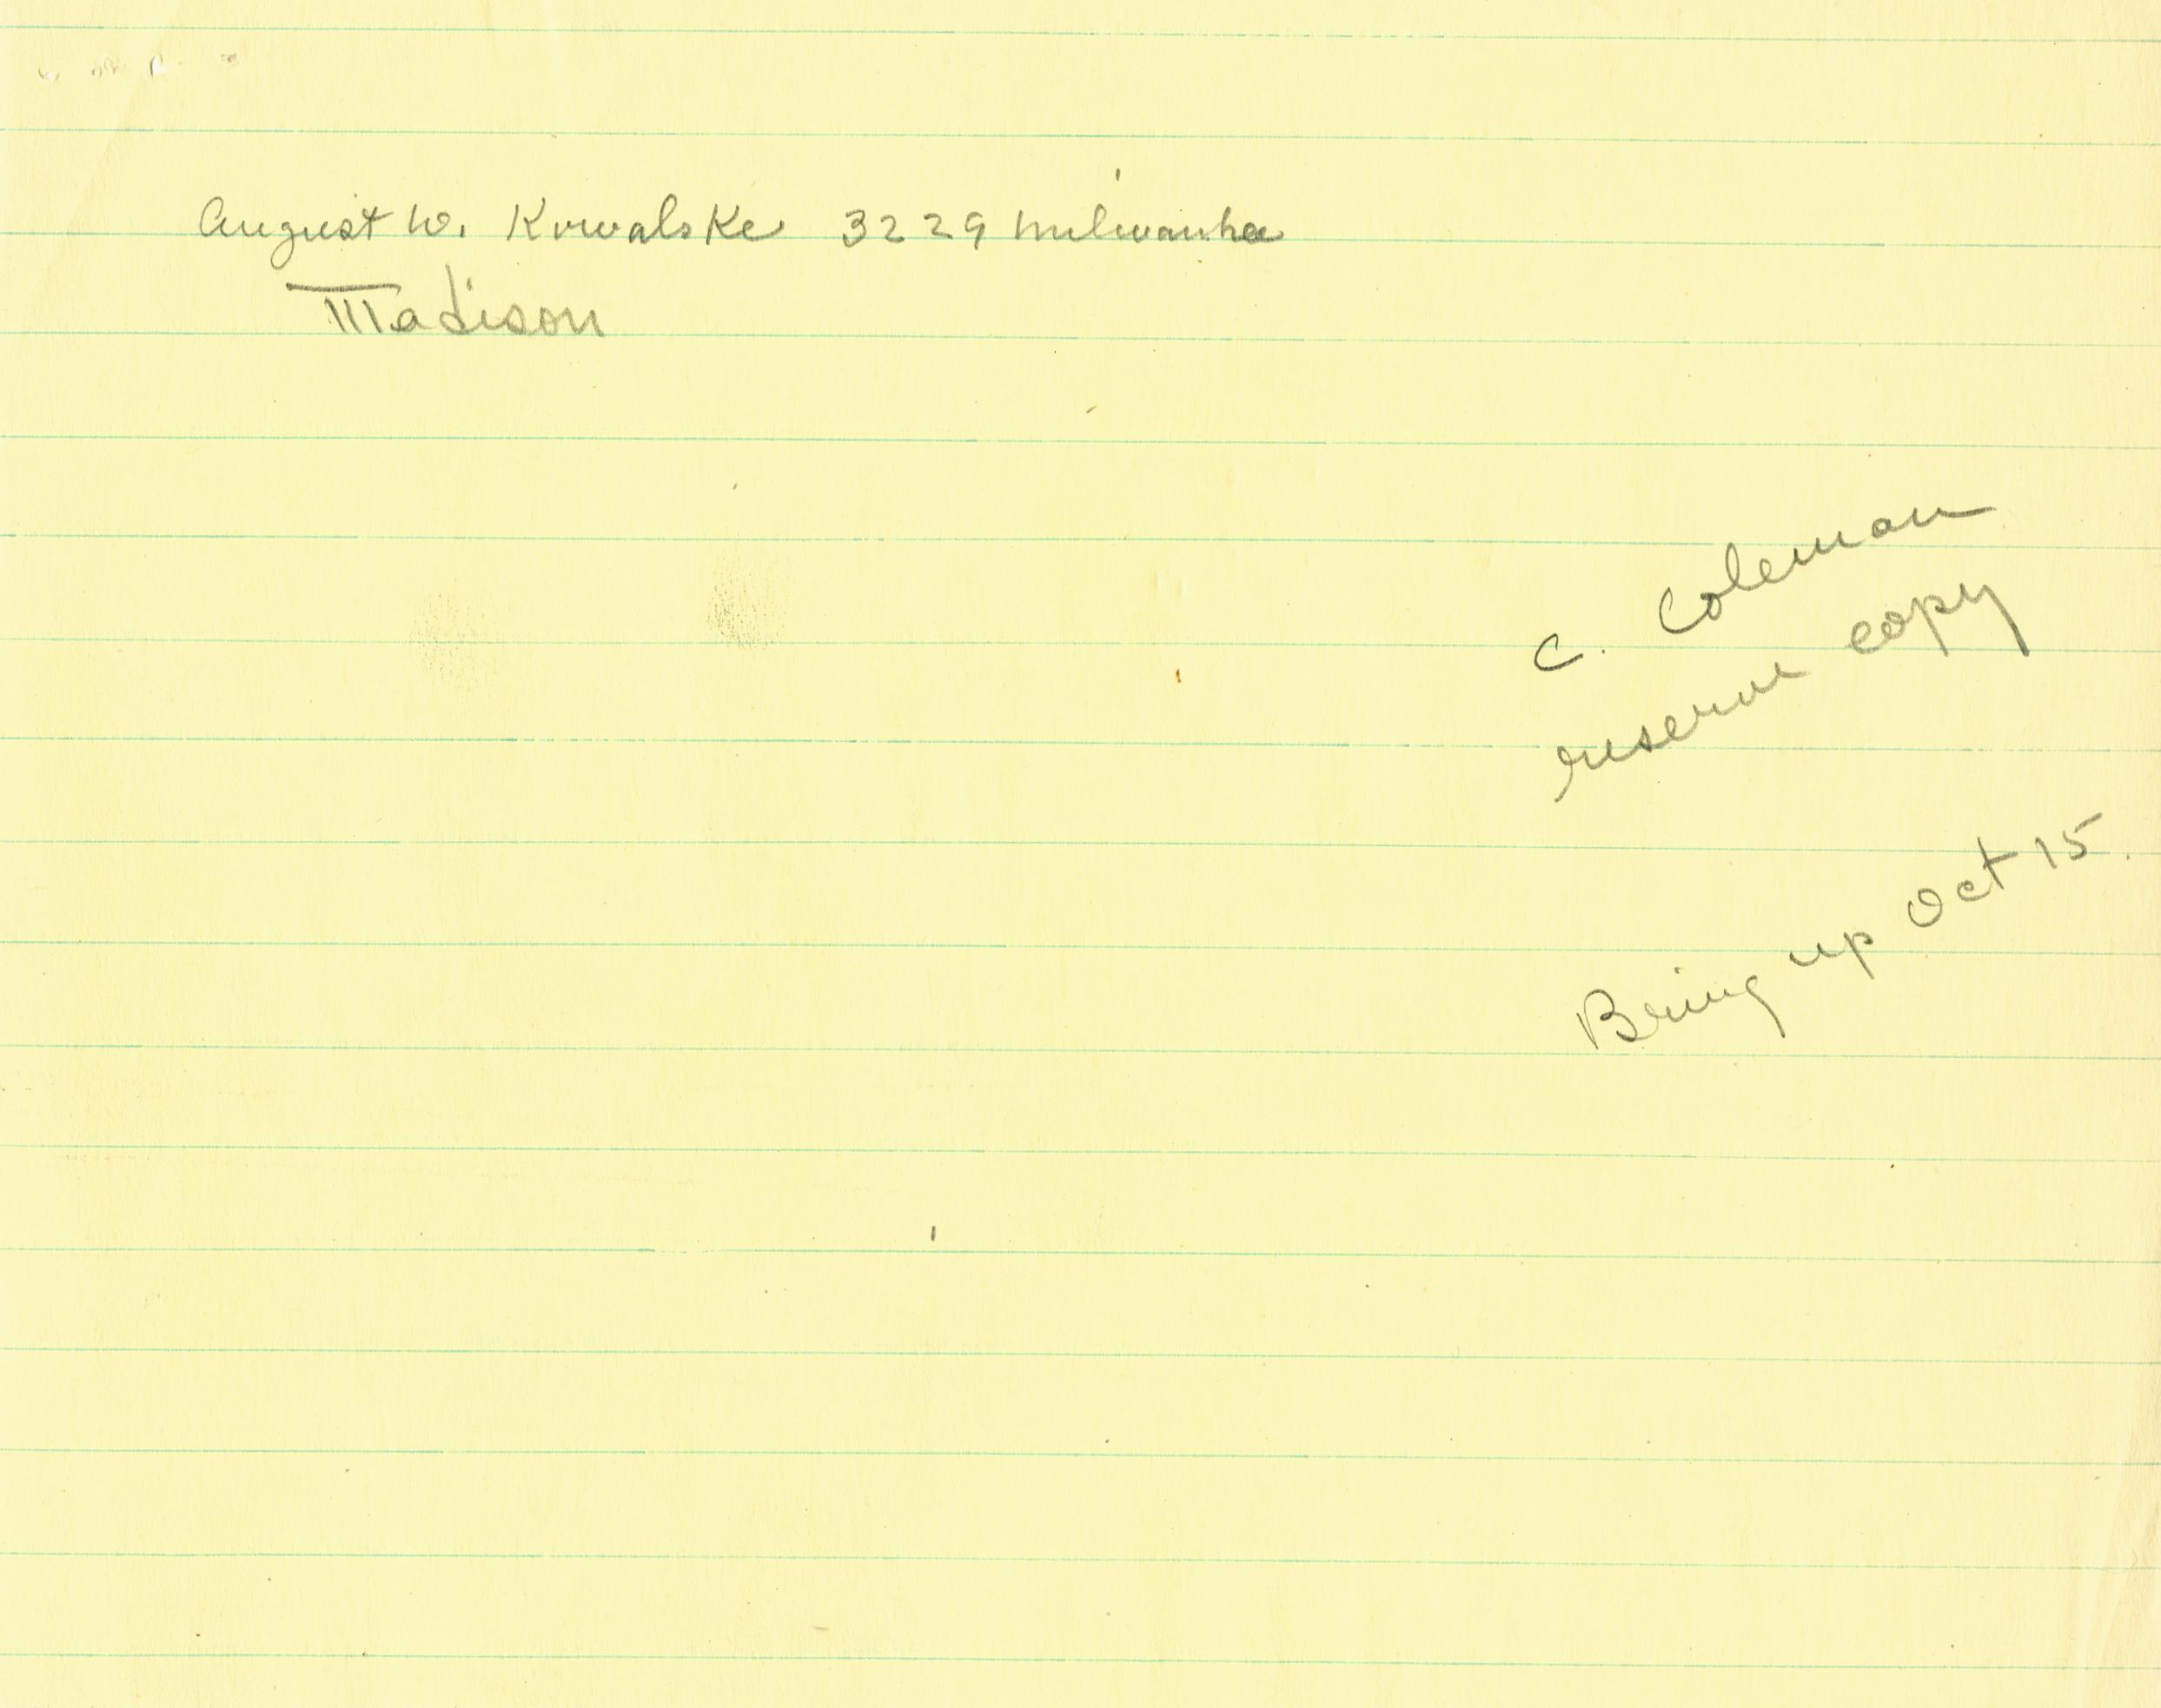 August W. Kowalske 3229 Milwaukee
Madison
C. Coleman
reserve copy
Bring up Oct 15.